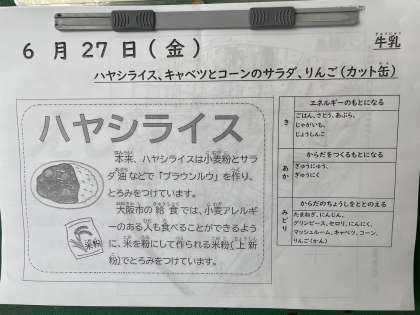 6月27日(金)
牛乳
ハヤシライス、キャベツとコーンのサラダ、りんご(カット缶)
ハヤシライス
本来、ハヤシライスは小麦粉とサラ
ダ油などで「ブラウンルウ」を作り、
とろみをつけています。
大阪市の給食では、小麦アレルギ
ーのある人も食べることができるよう
に、米を粉にして作られる米粉(上新
粉)でとろみをつけています。
米粉
エネルギーのもとになる
き
ごはん、さとう、あぶら、
じゃがいも、
じょうしんこ
からだをつくるもとになる
あか
ぎゅうにゅう、
ぎゅうにく
からだのちょうしをととのえる
みどり
たまねぎ、にんじん、
グリンピース、セロリ、にんにく、
マッシュルーム、キャベツ、コーン、
りんご(かん)